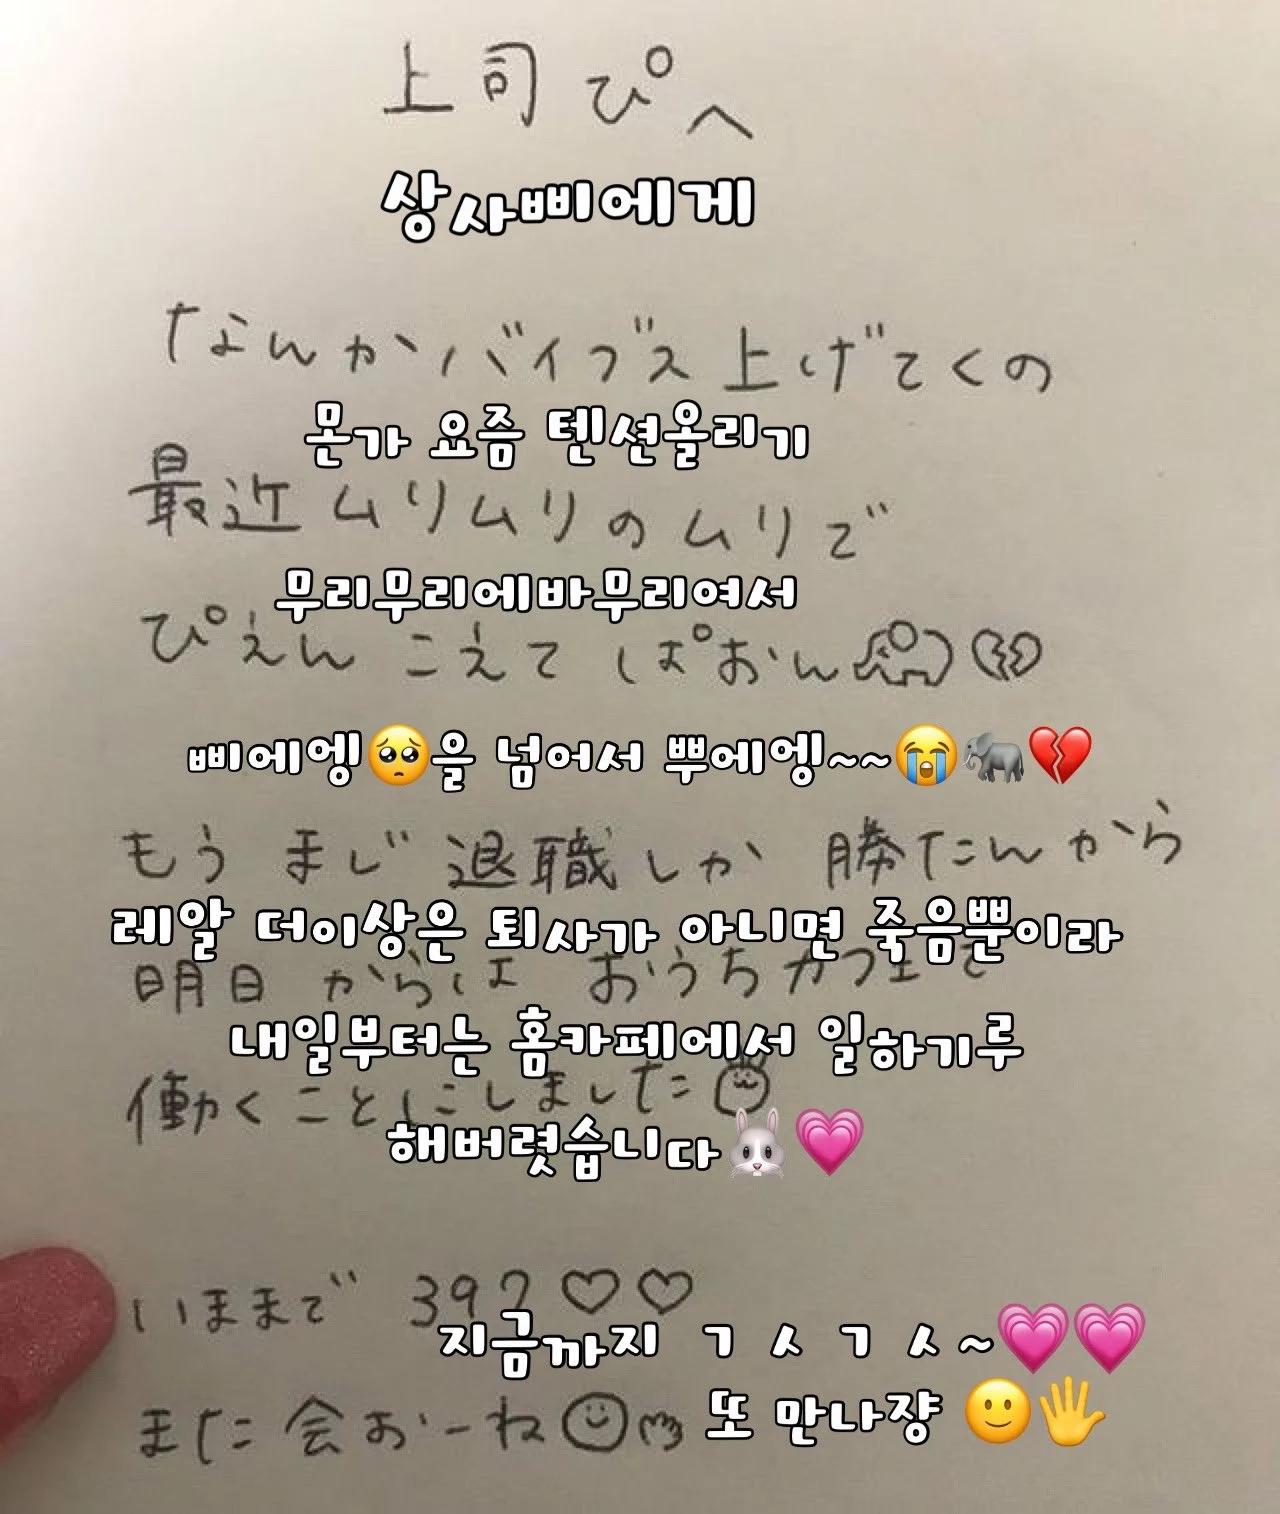 上司ぴへ
상사삐에게
なんかバイブス上げてくの
몬가 요즘 텐션올리기
最近ムリムリのムリで
무리무리에바무리여서
ぴえんこえてぱおん🐘💔
삐에엥🥺을 넘어서 뿌에엥~~😭🐘💔
もうまじ退職しか勝たんから
레알 더이상은 퇴사가 아니면 죽음뿐이라
明日からは おうちカフェで
내일부터는 홈카페에서 일하기루
働くことにしました
해버렷습니다🐰💗
いままで 397♡♡
지금까지 ㄱㅅㄱㅅ~💗💗
また会おーね
또 만나쟝 🙂🖐